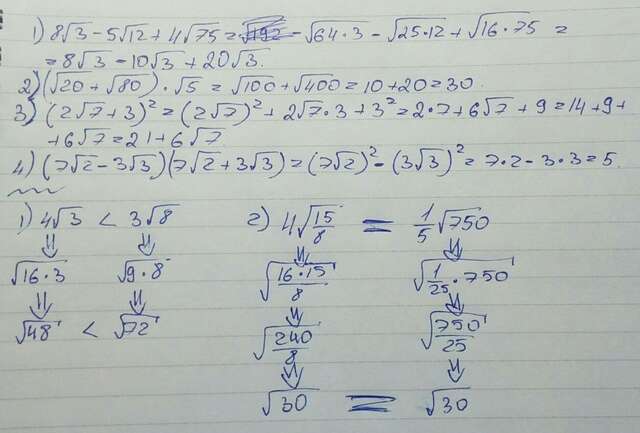 1) 8√3 - 5√12 + 4√75 = √64·3 - √25·12 + √16·75 =
= 8√3 - 10√3 + 20√3.
2) (√20 + √80)·√5 = √100 + √400 = 10 + 20 = 30.
3) (2√7 + 3)² = (2√7)² + 2√7·3 + 3² = 2·7 + 6√7 + 9 = 14 + 9 +
+ 6√7 = 21 + 6√7
4) (7√2 - 3√3)(7√2 + 3√3) = (7√2)² - (3√3)² = 7·2 - 3·3 = 5.
1) 4√3 < 3√8
⇓ ⇓
√16·3 √9·8
⇓ ⇓
√48 < √72
2) 4√15/8 = 1/5√750
⇓ ⇓
√16·15/8 √1/25·750
⇓ ⇓
√240/8 √750/25
⇓ ⇓
√30 = √30